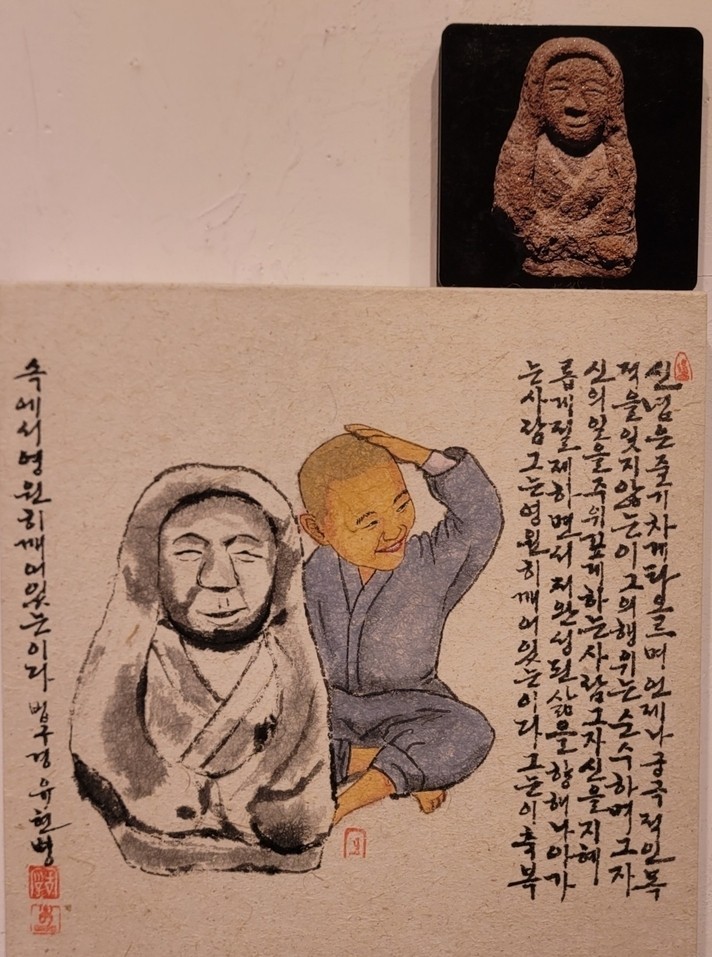 신념은 줄기차게 타오르며 언제나 궁극적인 목
적을 잊지 않는 이 그의 행위는 순수하며 그 자
신의 일을 주위 깊게 하는 사람 그 자신을 지혜
롭게 절제하면서 저 완성된 삶을 향해 나아가
는 사람 그는 영원히 깨어 있는 이다 그는 이 축복
속에서 영원히 깨어 있는 이다 법구경 유현병